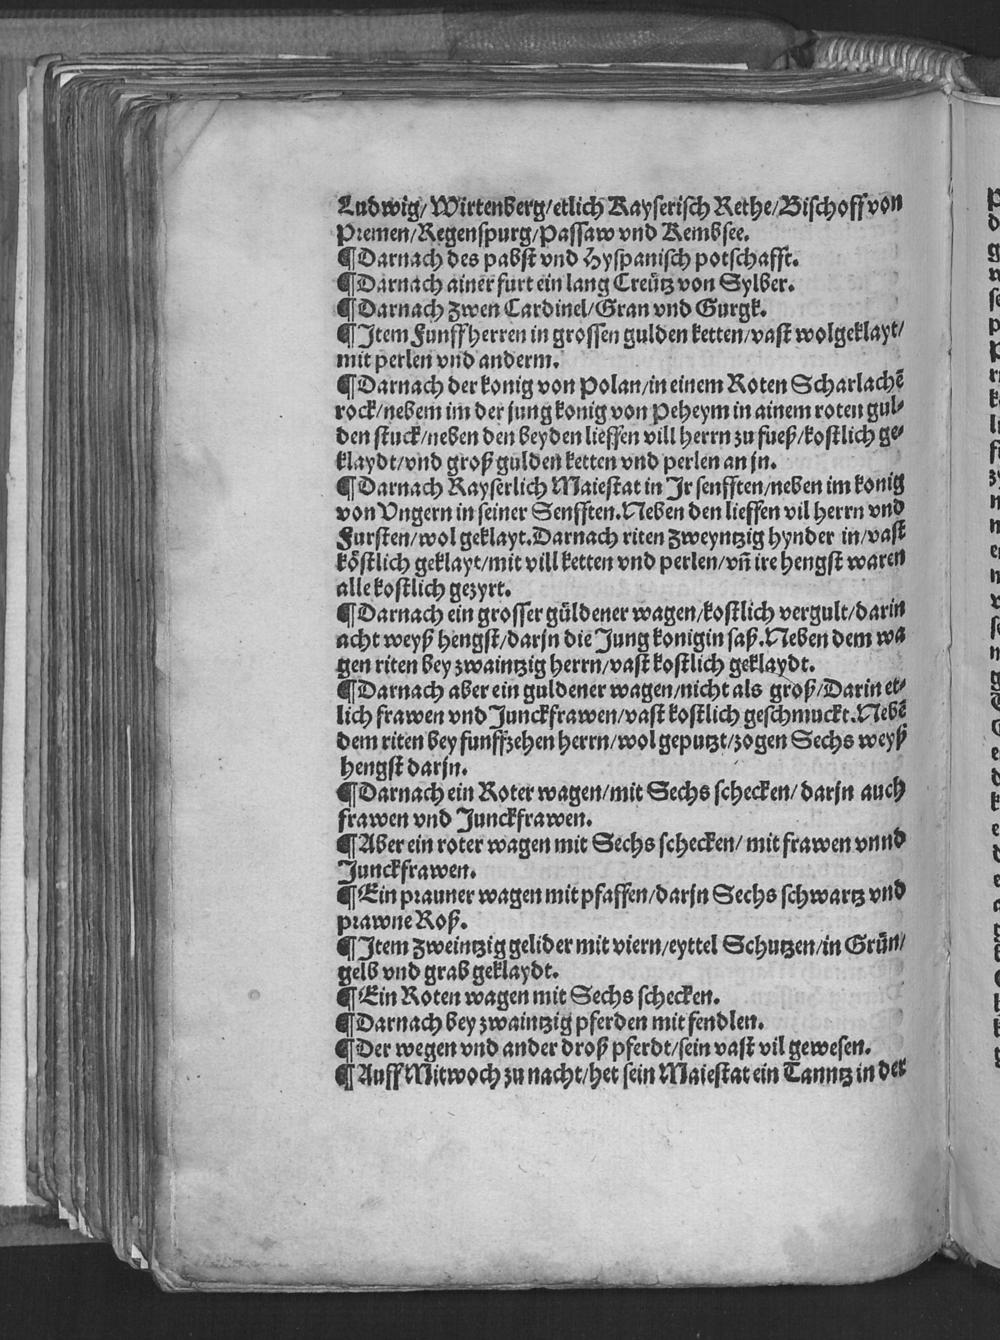 Ludwig/ Wirtenberg/etlich Kayserisch Rethe/Bischoff von
Premen/Regenspurg/Passaw vnd Kembsee.
¶Darnach des pabst vnd Hyspanisch potschafft.
¶Darnach ainer furt ein lang Creütz von Sylber.
¶Darnach zwen Cardinel/Gran vnd Gurgk.
¶Jtem Funff herren in grossen gulden ketten/vast wolgeklayt/
mit perlen vnd anderm.
¶Darnach der konig von Polan/in einem Roten Scharlachē
rock/nebem im der jung konig von Peheym in ainem roten gul⸗
den stuck/neben den beyden lieffen vill herrn zu fueß/kostlich ge⸗
klaydt/vnd groß gulden ketten vnd perlen an jn.
¶Darnach Kayserlich Maiestat in Jr senfften/neben im konig
von Vngern in seiner Senfften. Neben den lieffen vil herrn vnd
Fursten/wol geklayt. Darnach riten zweyntzig hynder in/vast
köstlich geklayt/mit vill ketten vnd perlen/vñ ire hengst waren
alle kostlich gezyrt.
¶Darnach ein grosser güldener wagen/kostlich vergult/darin
acht weyß hengst/darjn die Jung konigin saß. Neben dem wa
gen riten bey zwaintzig herrn/vast kostlich geklaydt.
¶Darnach aber ein guldener wagen/nicht als groß/Darin et⸗
lich frawen vnd Junckfrawen/vast kostlich geschmuckt. Nebē
dem riten bey funffzehen herrn/wol geputzt/zogen Sechs weyß
hengst darjn.
¶Darnach ein Roter wagen/mit Sechs schecken/ darjn auch
frawen vnd Junckfrawen.
¶Aber ein roter wagen mit Sechs schecken/ mit frawen vnnd
Junckfrawen.
¶Ein prauner wagen mit pfaffen/darjn Sechs schwartz vnd
prawne Roß.
¶Jtem zweintzig gelider mit viern/eyttel Schutzen/in Grün/
gelb vnd grab geklaydt.
¶Ein Roten wagen mit Sechs schecken.
¶Darnach bey zwaintzig pferden mit fendlen.
¶Der wegen vnd ander droß pferdt/sein vast vil gewesen.
¶Auff Mitwoch zu nacht/het sein Maiestat ein Tanntz in der